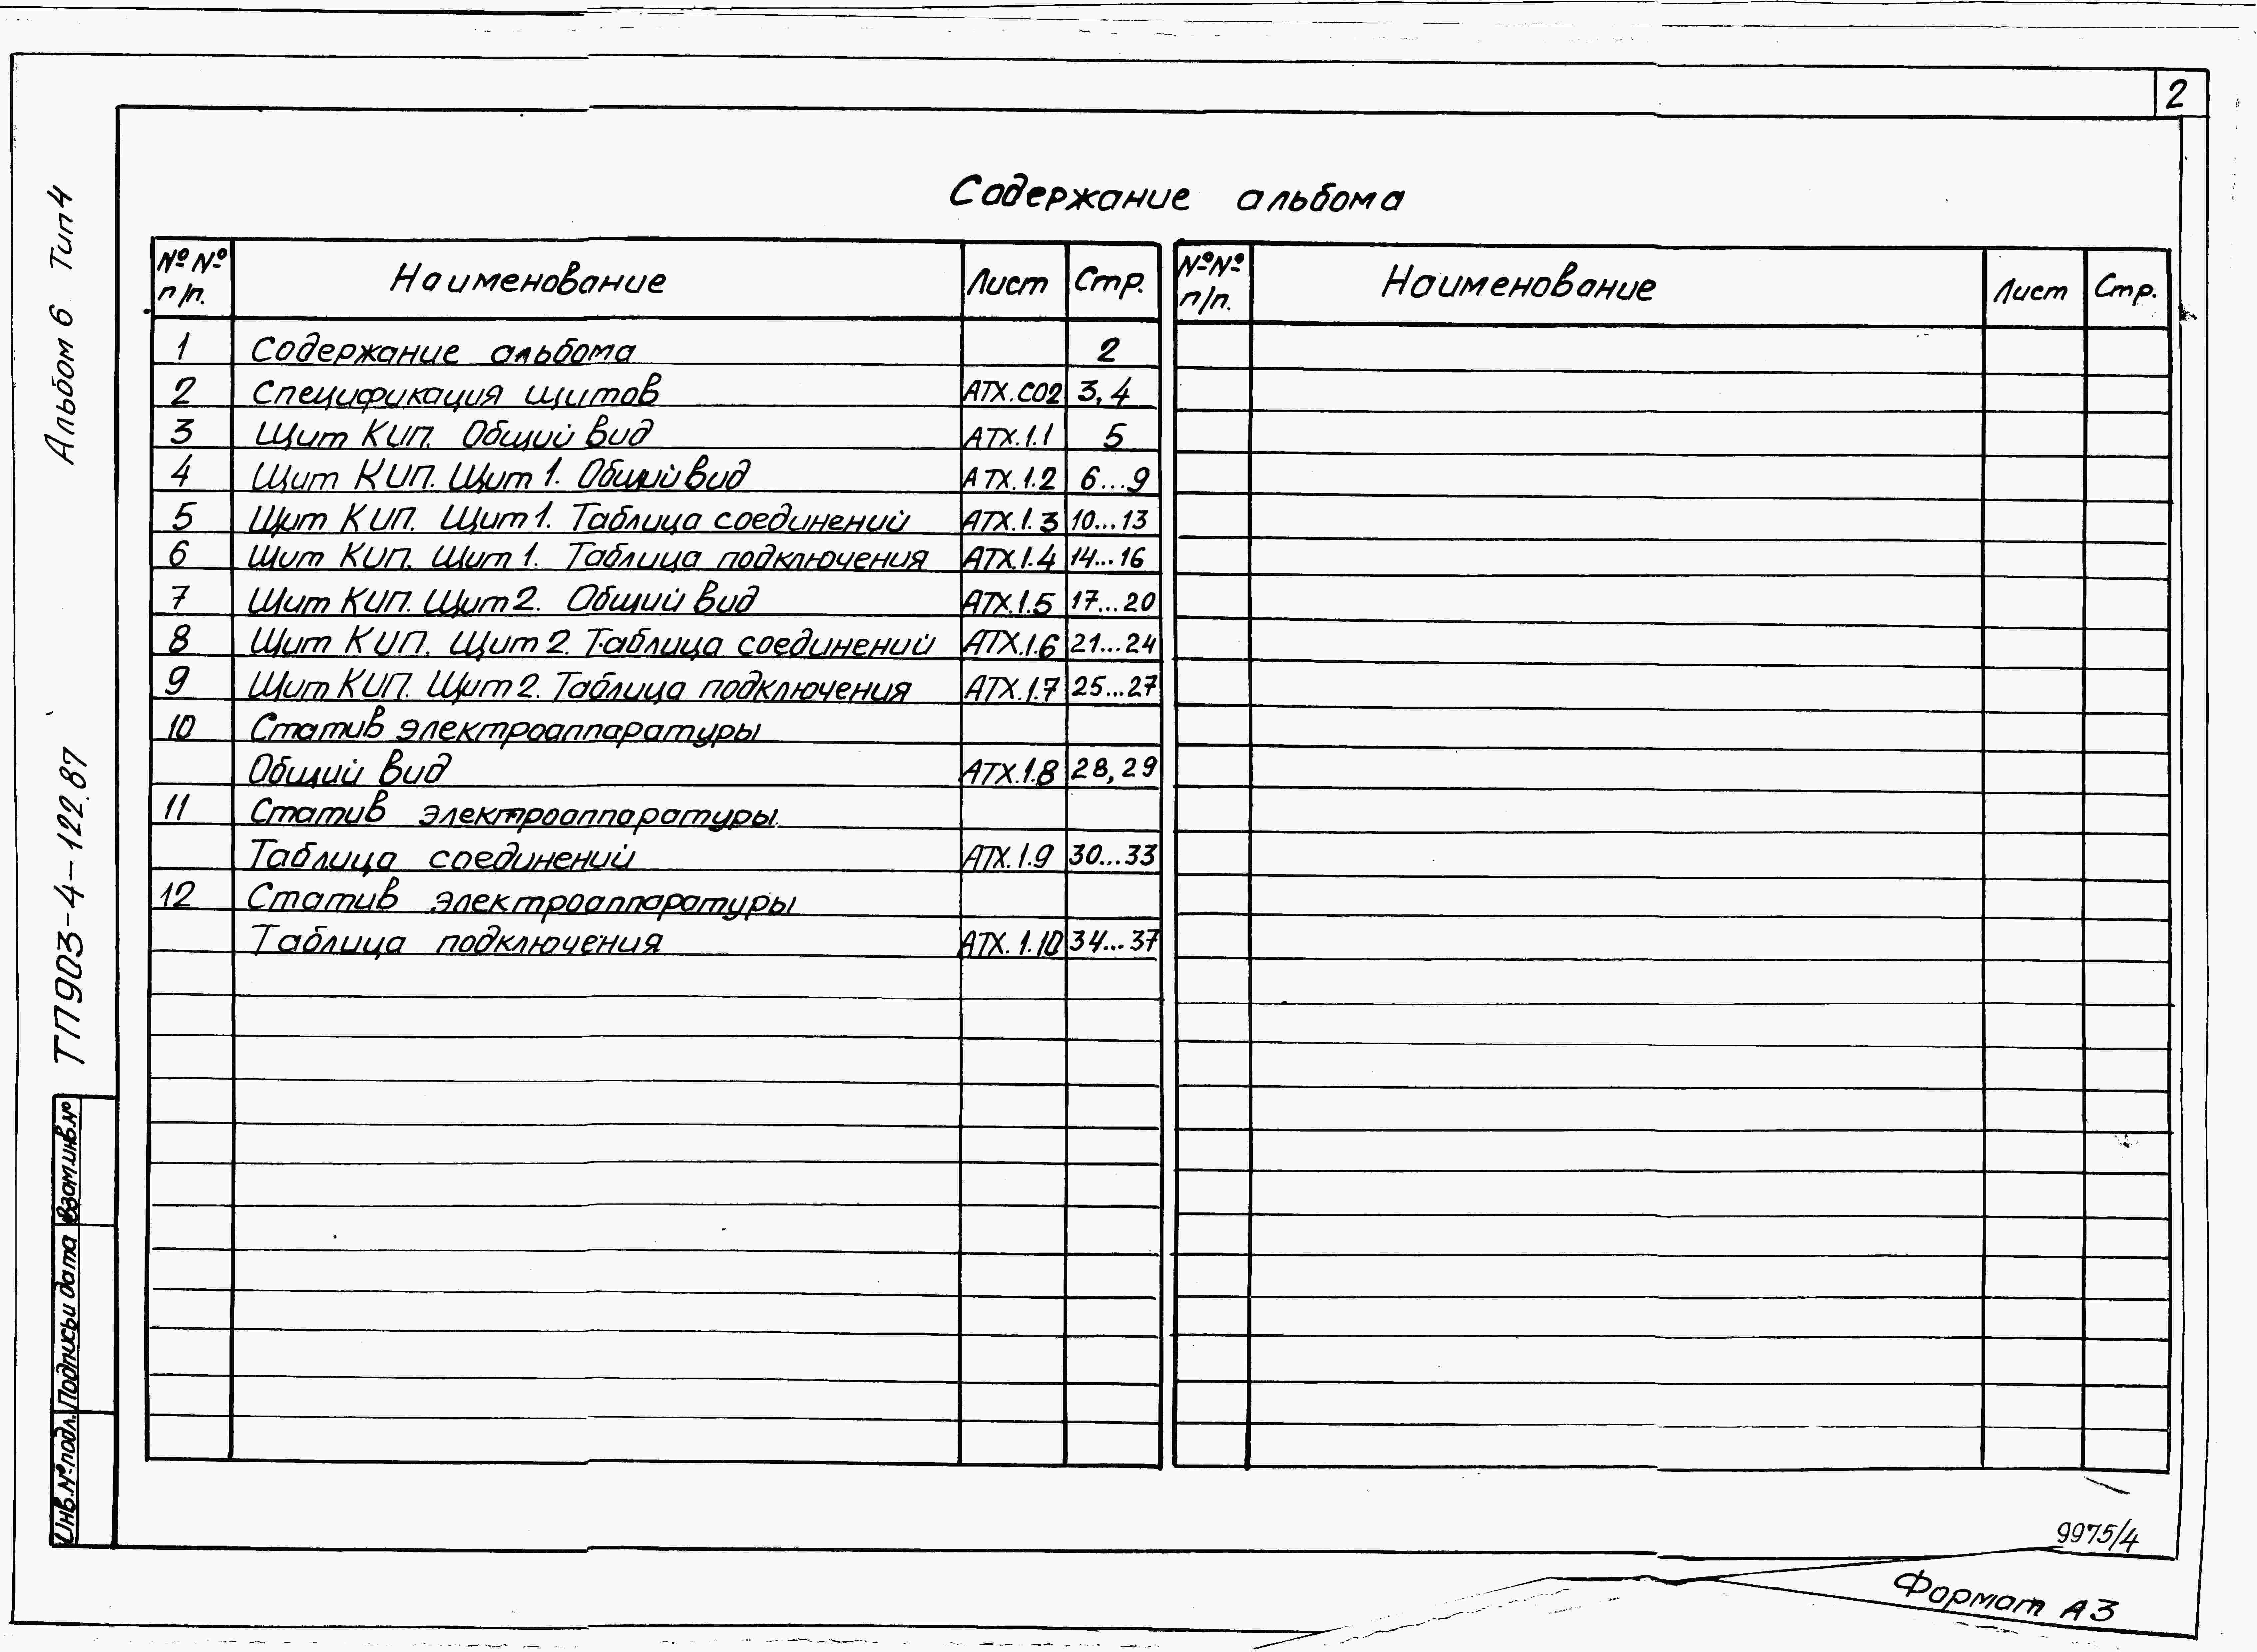 2
Содержание альбома
№№ п/п. Наименование Лист Стр. №№ п/п. Наименование Лист Стр.
1 Содержание альбома 2
2 Спецификация щитов АТХ.СО2 3, 4
3 Щит КИП. Общий вид АТХ.1.1 5
4 Щит КИП. Щит 1. Общий вид АТХ.1.2 6...9
5 Щит КИП. Щит 1. Таблица соединений АТХ.1.3 10...13
6 Щит КИП. Щит 1. Таблица подключения АТХ.1.4 14...16
7 Щит КИП. Щит 2. Общий вид АТХ.1.5 17...20
8 Щит КИП. Щит 2. Таблица соединений АТХ.1.6 21...24
9 Щит КИП. Щит 2. Таблица подключения АТХ.1.7 25...27
10 Статив электроаппаратуры
Общий вид АТХ.1.8 28, 29
11 Статив электроаппаратуры.
Таблица соединений АТХ.1.9 30...33
12 Статив электроаппаратуры
Таблица подключения АТХ.1.10 34...37
Альбом 6 Тип 4
ТП 903-4-122.87
Взам.инв.№
Подпись и дата
Инв.№ подл.
9975/4
Формат А3